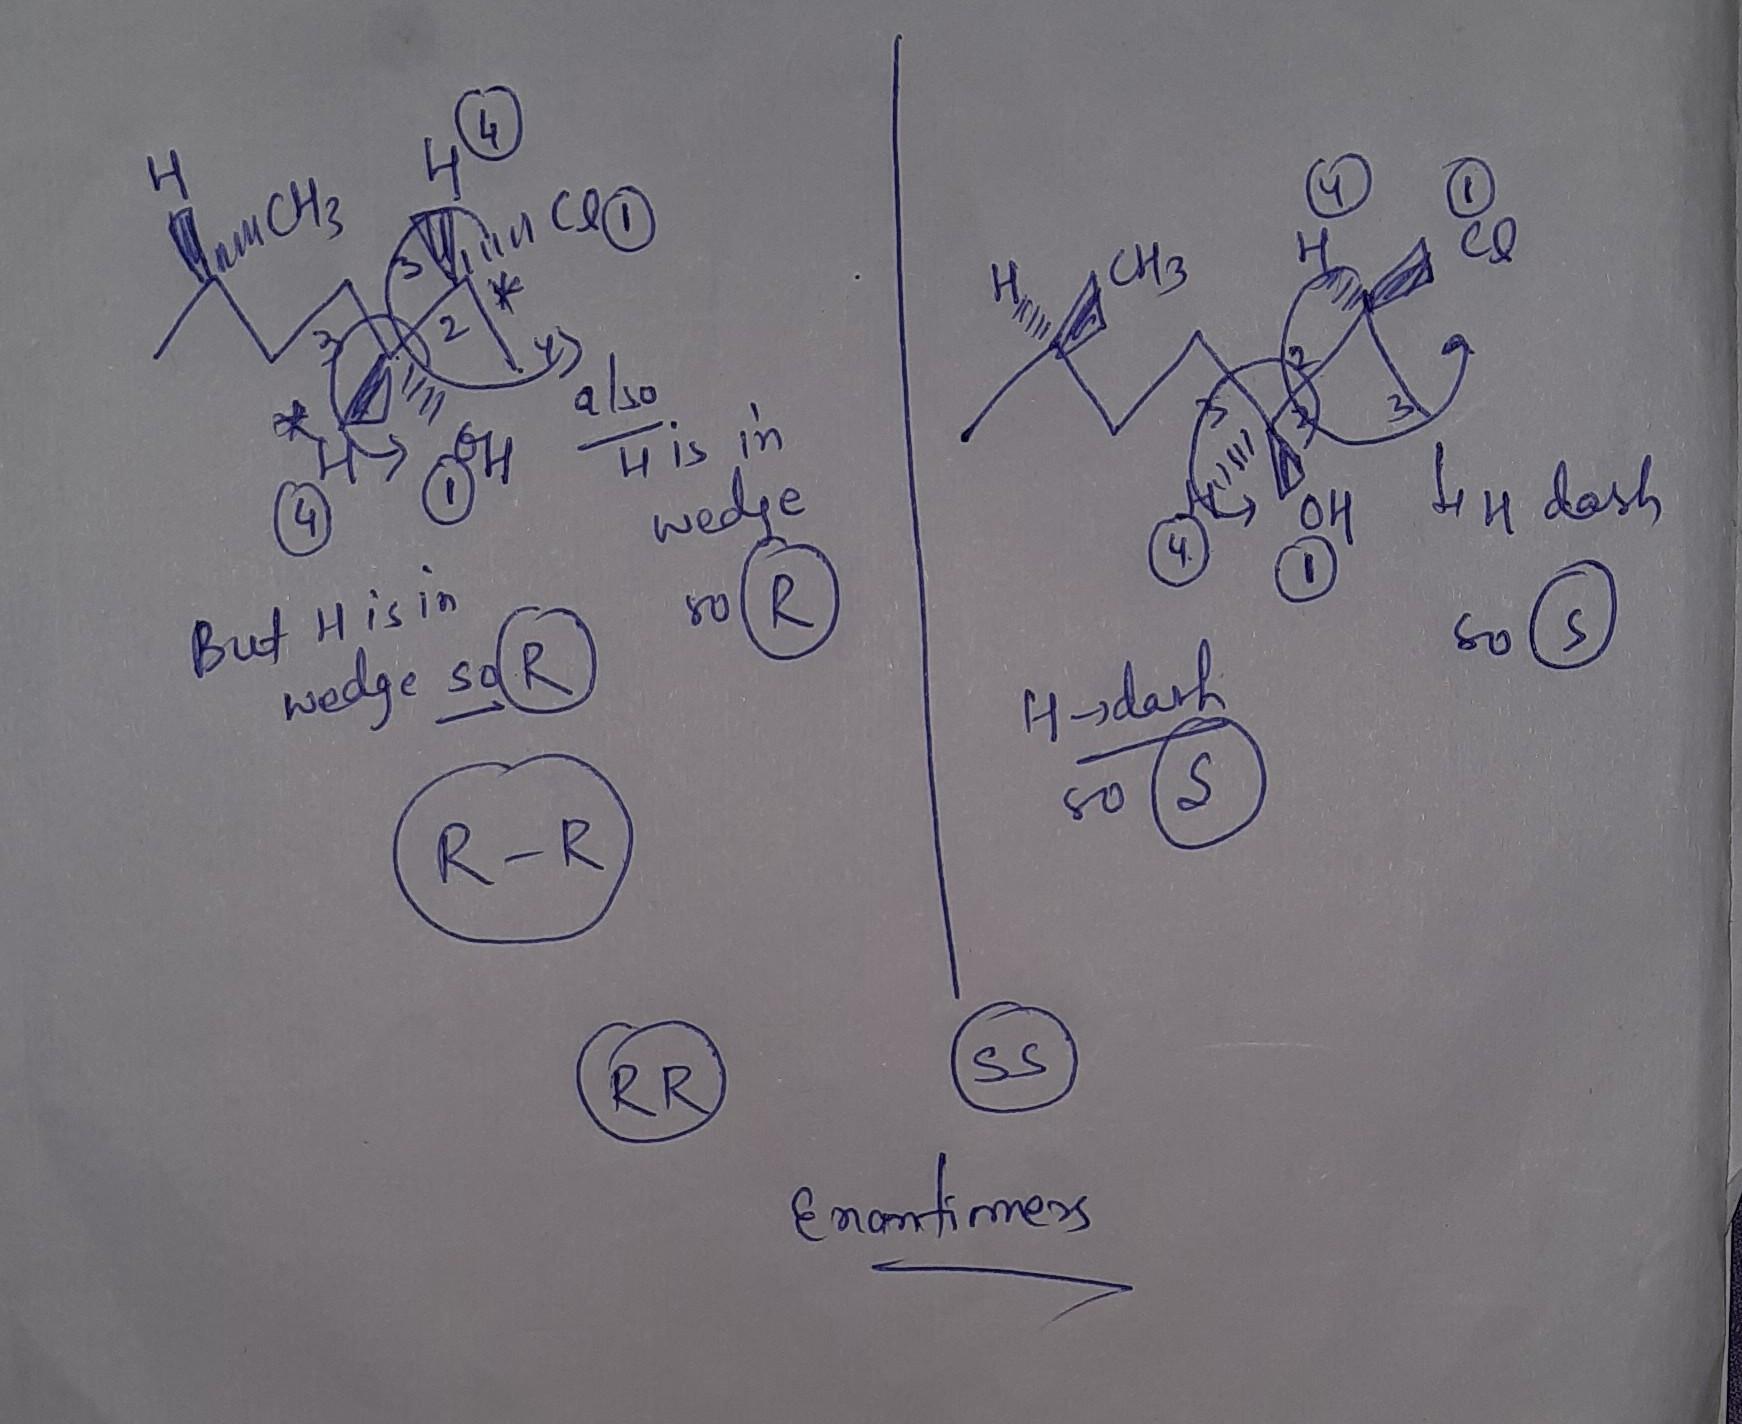 H
CH3
H
4
Cl 1
*
3
2
3
*
H
4
OH
1
also
H is in
wedge
so R
But H is in
wedge so R
R - R
H
CH3
H
4
1
Cl
2
3
3
2
4
OH
1
H dash
so S
H → dash
so S
RR
SS
Enantimers